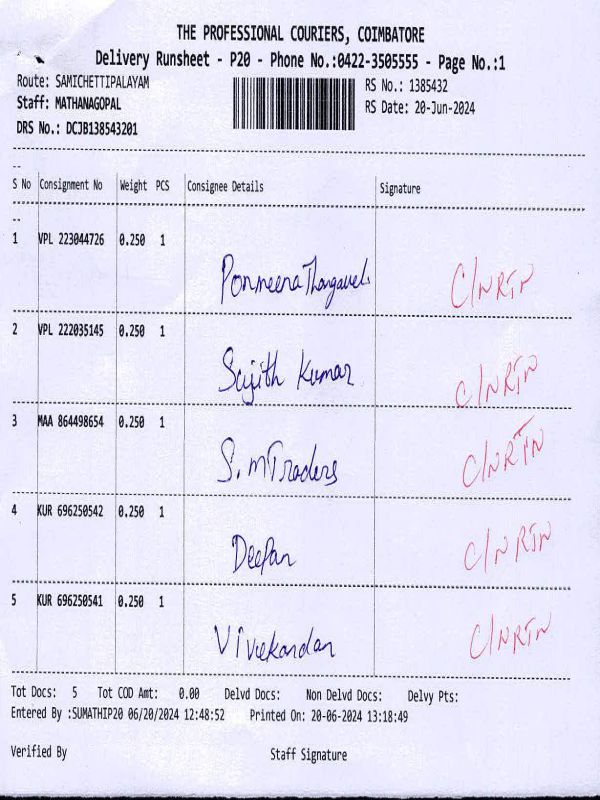 THE PROFESSIONAL COURIERS, COIMBATORE
Delivery Runsheet - P20 - Phone No.:0422-3505555 - Page No.:1
Route: SAMICHETTIPALAYAM
RS No.: 1385432
Staff: MATHANAGOPAL
RS Date: 20-Jun-2024
DRS No.: DCJB138543201
S No Consignment No Weight PCS Consignee Details Signature
1 VPL 223044726 0.250 1 Ponmeena Thangavel C/NRTN
2 VPL 222035145 0.250 1 Sujith Kumar C/NRTN
3 MAA 864498654 0.250 1 S.M Traders C/NRTN
4 KUR 696250542 0.250 1 Deepan C/NRTN
5 KUR 696250541 0.250 1 Vivekandan C/NRTN
Tot Docs: 5 Tot COD Amt: 0.00 Delvd Docs: Non Delvd Docs: Delvy Pts:
Entered By :SUMATHIP20 06/20/2024 12:48:52 Printed On: 20-06-2024 13:18:49
Verified By Staff Signature